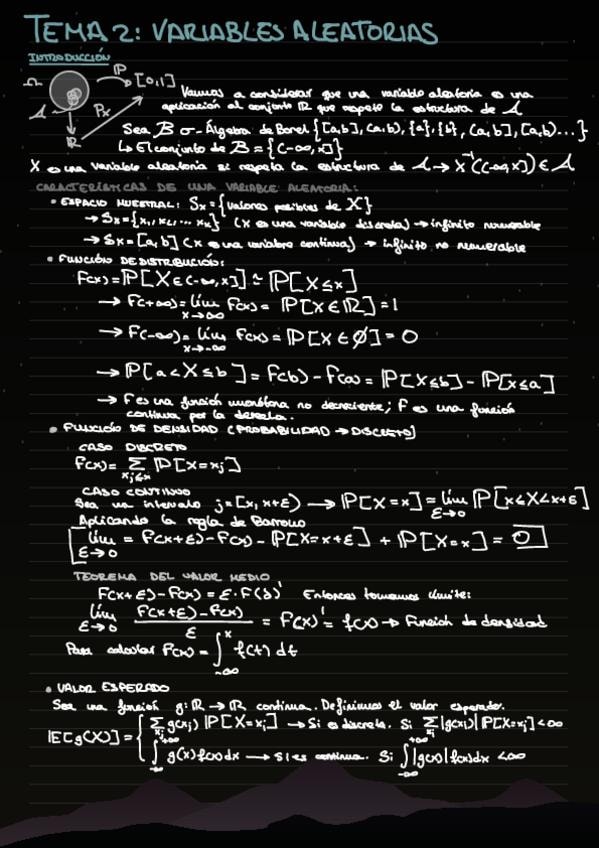 TEMA 2: VARIABLES ALEATORIAS
INTRODUCCIÓN
Ω P [0,1]
A Px
R
Vamos a considerar que una variable aleatoria es una
aplicación al conjunto ℝ que respete la estructura de A
Sea B σ-Álgebra de Borel {[a,b], (a,b), {a}, {b}, (a,b], [a,b)...}
↳ El conjunto de B = {(-∞,x]}
X es una variable aleatoria si respeta la estructura de A → X⁻¹((-∞,x]) ∈ A
CARACTERÍSTICAS DE UNA VARIABLE ALEATORIA:
• ESPACIO MUESTRAL: Sx = {valores posibles de X}
→ Sx = {x₁, x₂, ... xₖ} (X es una variable discreta) → infinito numerable
→ Sx = [a,b] (X es una variable continua) → infinito no numerable
• FUNCIÓN DE DISTRIBUCIÓN:
F(x) = P[X ∈ (-∞,x]] ≃ P[X ≤ x]
→ F(+∞) = lím x→∞ F(x) = P[X ∈ ℝ] = 1
→ F(-∞) = lím x→-∞ F(x) = P[X ∈ ∅] = 0
→ P[a < X ≤ b] = F(b) - F(a) = P[X ≤ b] - P[X ≤ a]
→ F es una función monótona no decreciente; F es una función
continua por la derecha.
• FUNCIÓN DE DENSIDAD (PROBABILIDAD → DISCRETO)
CASO DISCRETO
F(x) = Σ xj≤x P[X = xj]
CASO CONTINUO
Sea un intervalo j = [x, x+ε) → P[X = x] = lím ε→0 P[x ≤ X < x+ε]
Aplicando la regla de Barrow
[lím ε→0 = F(x+ε) - F(x) - P[X = x+ε] + P[X = x] = 0]
TEOREMA DEL VALOR MEDIO
F(x+ε) - F(x) = ε · F(δ)' Entonces tomamos límite:
lím ε→0 (F(x+ε) - F(x))/ε = F(x)' = f(x) → Función de densidad
Para calcular F(x) = ∫_{-∞}^{x} f(t) dt
• VALOR ESPERADO
Sea una función g: ℝ → ℝ continua. Definimos el valor esperado.
E[g(X)] = { Σ xj g(xj) P[X = xj] → Si es discreta. Si Σ xj |g(xj)| P[X = xj] < ∞
∫_{-∞}^{+∞} g(x) f(x) dx → Si es continua. Si ∫_{-∞}^{+∞} |g(x)| f(x) dx < ∞